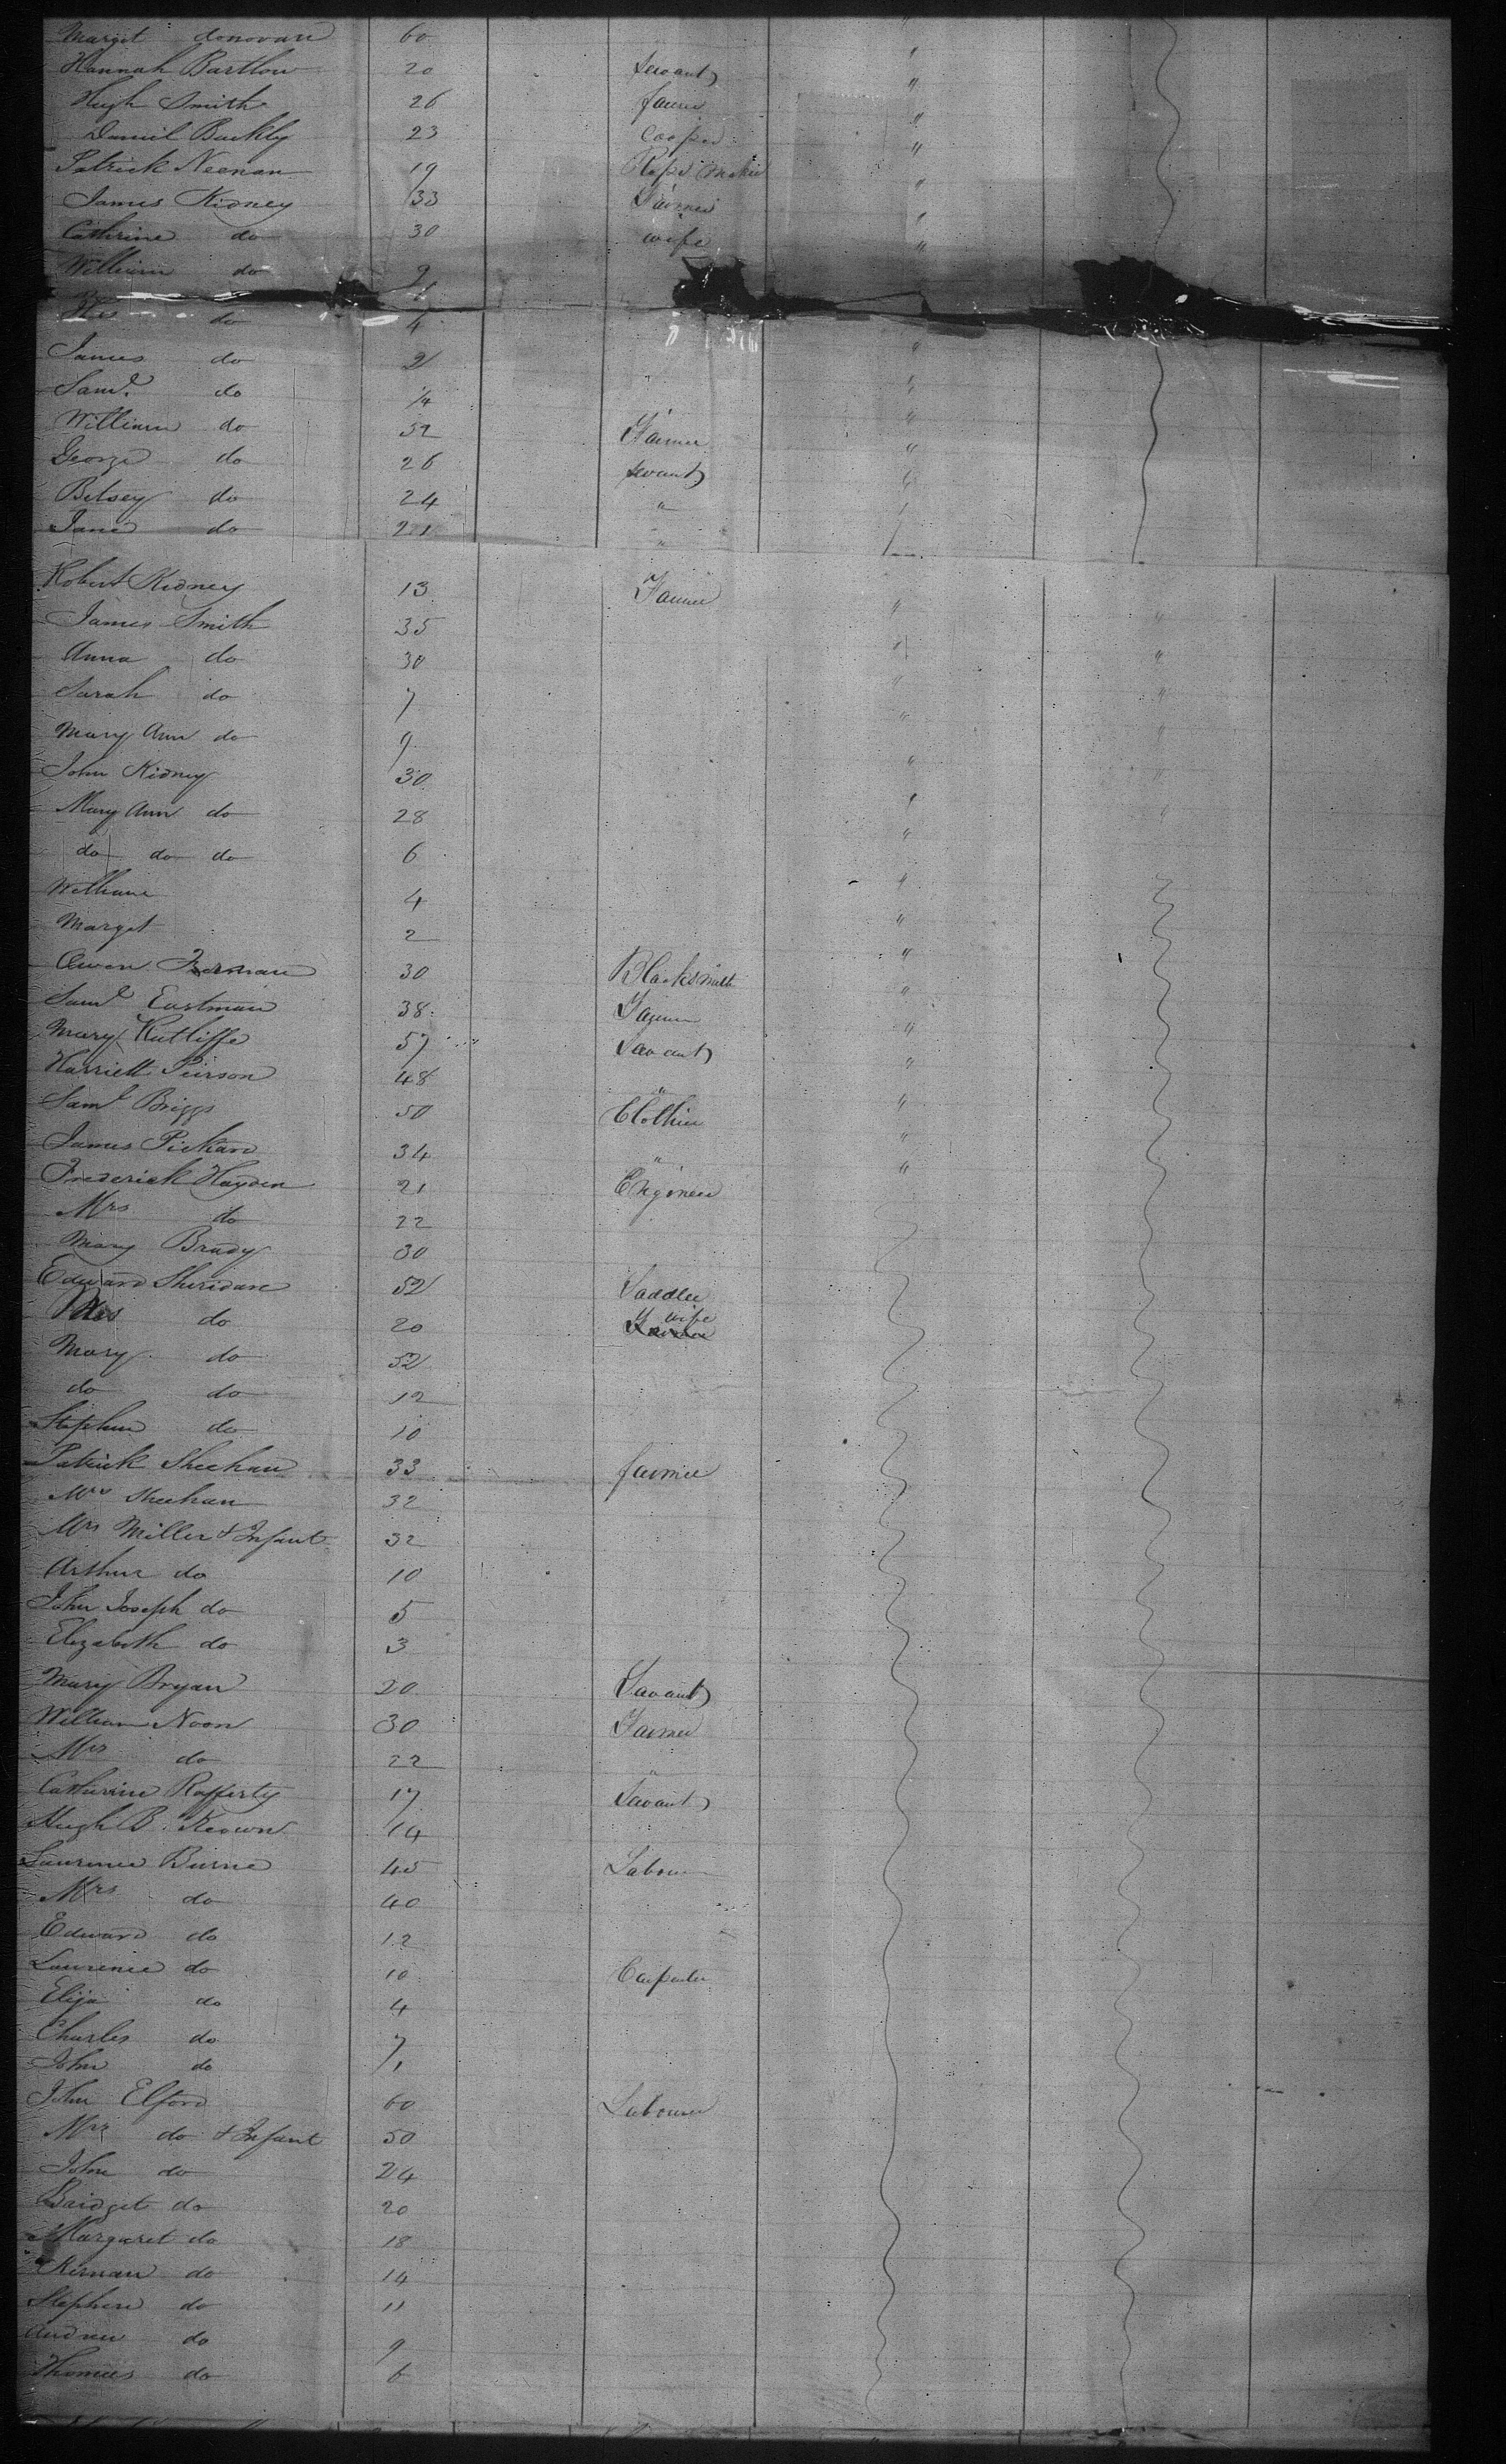 Marget donovan 60
Hannah Bartlow 20 servant
Hugh Smith 26 farmer
Daniel Buckly 23 Cooper
Patrick Neenan 19 Rope Maker
James Kidney 33 Farmer
Cathrine do 30 wife
William do 9
do 4
James do 2
Saml. do 1/4
William do 52 Farmer
George do 26 servant
Betsey do 24 "
Jane do 21 "
Robert Kidney 13 Farmer
James Smith 35
Anna do 30
Sarah do 7
Mary Ann do 9
John Kidney 30
Mary Ann do 28
do do do 6
William 4
Marget 2
Owen 30 Blacksmith
Saml Eastman 38 Farmer
Mary Rutliffe 57 Servant
Harriett Peirson 48 "
Saml Briggs 50 Clothier
James Pickard 34 "
Frederick Hayden 21 Engineer
Mrs do 22
Mary Brady 30
Edward Sheridan 52 Saddler
Mrs do 20 wife
Mary do 52
do do 12
Stephen do 10
Patrick Sheehan 33 farmer
Mrs Sheehan 32
Mrs Miller & Infant 32
Arthur do 10
John Joseph do 5
Elizabeth do 3
Mary Bryan 20 Servant
William Noon 30 Farmer
Mrs do 22 "
Catherine Rafferty 17 Servant
Hugh B. Keown 14
Laurence Burne 45 Labourer
Mrs do 40
Edward do 12
Laurence do 10 Carpenter
Eliza do 4
Charles do 7
John do 1
John Elford 60 Labourer
Mrs do & Infant 50
John do 24
Bridget do 20
Margaret do 18
Kirnan do 14
Stephen do 11
Andrew do 9
Thomas do 6